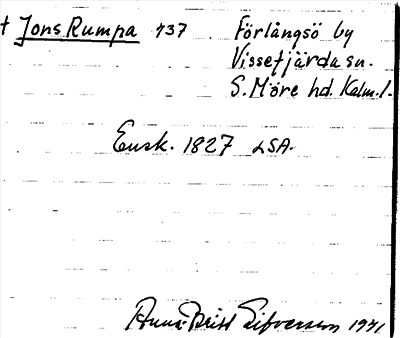 † Jons Rumpa 737 . Förlångsö by
Vissefjärda sn.
S. Möre hd. Kalm. l.
Ensk. 1827 LSA.
Anna-Britt Sifversson 1971